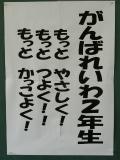 がんばれいわ2年生
もっと やさしく!
もっと つよく!!
もっと かっこよく!